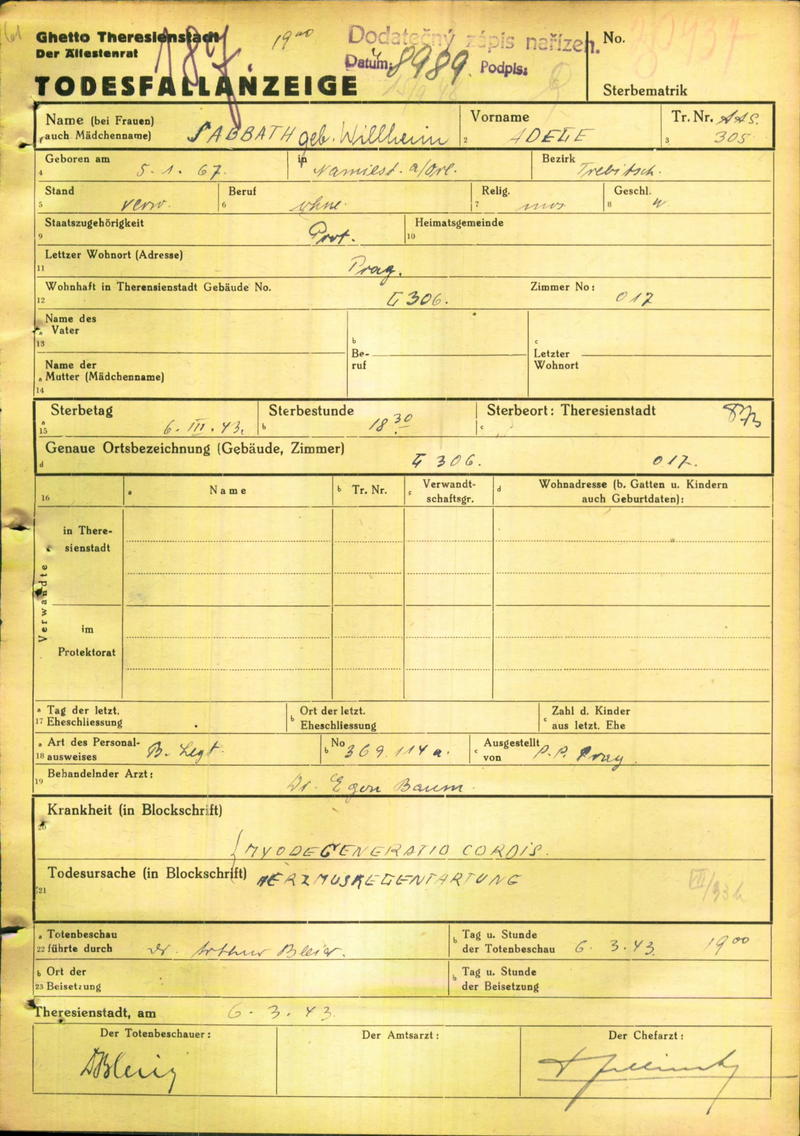 Ghetto Theresienstadt
Der Ältestenrat
TODESFALLANZEIGE
187.
19⁰⁰
Dodatečný zápis nařízen.
Datum: 8989 Podpis:
No.
Sterbematrik
Name (bei Frauen)
auch Mädchenname) SABBATH geb. Willheim
Vorname
2 ADELE
Tr. Nr. AAS.
3 305
Geboren am
4 5. 1. 67.
in Namiest. a/Osl.
Bezirk Trebitsch.
Stand
5 verw.
Beruf
6 ohne
Relig.
7 mos
Geschl.
8 w
Staatszugehörigkeit
9 Prot.
Heimatsgemeinde
10
Lettzer Wohnort (Adresse)
11 Prag.
Wohnhaft in Therensienstadt Gebäude No.
12 G 306.
Zimmer No: 017
Name des
a Vater
13
b
Be-
ruf
c
Letzter
Wohnort
Name der
a Mutter (Mädchenname)
14
Sterbetag
a
15 6. III. 43.
Sterbestunde
b 18³⁰
Sterbeort: Theresienstadt
c
Genaue Ortsbezeichnung (Gebäude, Zimmer)
d G 306. 017.
16
a Name
b Tr. Nr.
c Verwandt-
schaftsgr.
d Wohnadresse (b. Gatten u. Kindern
auch Geburtdaten):
Verwandte
in There-
sienstadt
im
Protektorat
a Tag der letzt.
17 Eheschliessung
b Ort der letzt.
Eheschliessung
c Zahl d. Kinder
aus letzt. Ehe
a Art des Personal-
18 ausweises B. Legt.
b No 369.114a.
c Ausgestellt
von P. P. Prag
Behandelnder Arzt:
19 Dr. Egon Baum
Krankheit (in Blockschrift)
20
MYODEGENERATIO CORDIS.
Todesursache (in Blockschrift) HERZMUSKELENTARTUNG
21
a Totenbeschau
22 führte durch Dr. Arthur Bleier.
b Tag u. Stunde
der Totenbeschau 6. 3. 43. 19⁰⁰
b Ort der
23 Beisetzung
b Tag u. Stunde
der Beisetzung
Theresienstadt, am 6. 3. 43.
Der Totenbeschauer:
Der Amtsarzt:
Der Chefarzt: